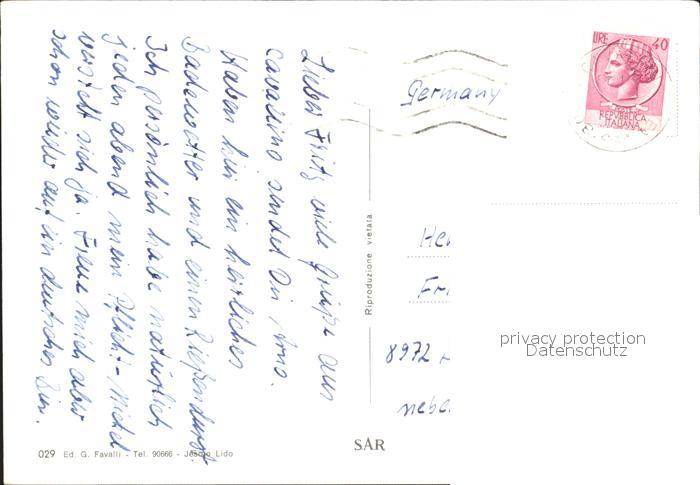 Lieber Fritz viele Grüße aus
Cavallino sendet Dir Arno.
Haben hier ein herrliches
Badewetter und einen Riesendurst.
Ich persönlich habe natürlich
jeden abend mein Pflicht-
versteht sich ja. Freue mich aber
schon wieder auf ein deutsches Bier.
Germany
LIRE 40
POSTE
REPUBBLICA
ITALIANA
Riproduzione vietata
Her
Fri
8972
nebe
privacy protection
Datenschutz
SAR
029 Ed. G. Favalli - Tel. 90666 - Jesolo Lido